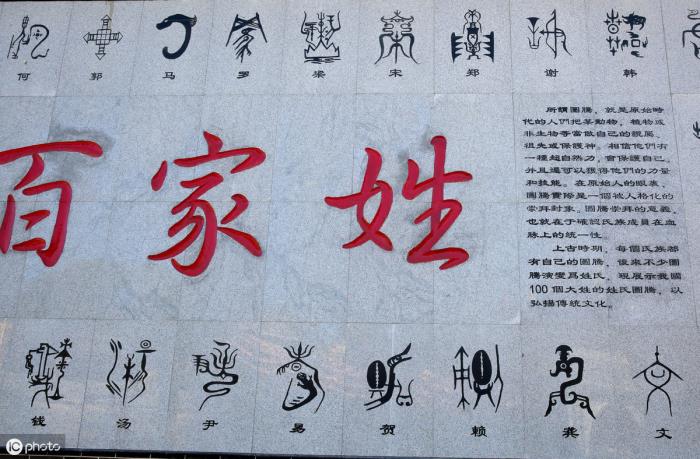 何 郭 马 罗 梁 宋 郑 谢 韩
百家姓
所謂圖騰，就是原始時
代的人們把某動物，植物或
非生物等當做自己的親屬、
祖先或保護神。相信他們有
一種超自然力，會保護自己，
并且還可以獲得他們的力量
和技能。在原始人的眼裏，
圖騰實際是一個被人格化的
崇拜對象。圖騰崇拜的意義，
也就在于確認氏族成員在血
脉上的統一性。
上古時期，每個氏族都
有自己的圖騰，後來不少圖
騰演變爲姓氏，現展示我國
100個大姓的姓氏圖騰，以
弘揚傳統文化。
钱 汤 尹 易 贺 赖 龚 文
iC photo